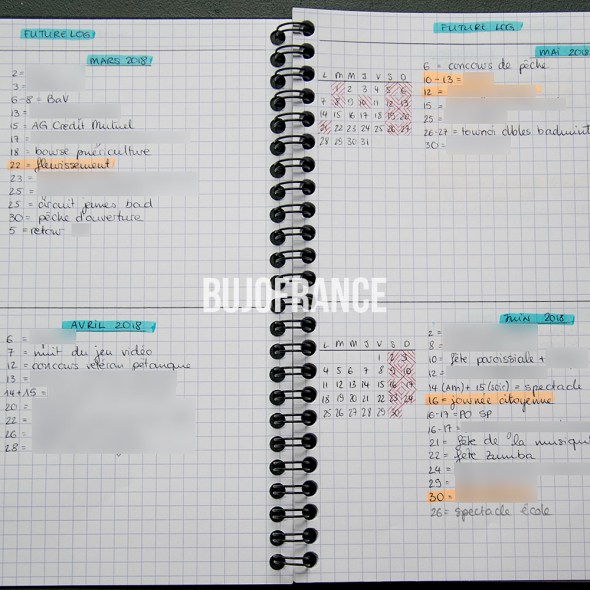 FUTURE LOG
MARS 2018
2=
3=
6-8= BaV
13=
15= AG Crédit Mutuel
17=
18= bourse puériculture
22= fleurissement
23=
25=
25= circuit jeunes bad
30= pêche d'ouverture
5= retour
AVRIL 2018
6=
7= nuit du jeu vidéo
12= concours vétéran pétanque
13=
14+15=
20=
22=
26=
28=
BUJOFRANCE
FUTURE LOG
MAI 2018
L M M J V S D
1 2 3 4 5 6
7 8 9 10 11 12 13
14 15 16 17 18 19 20
21 22 23 24 25 26 27
28 29 30 31
6= concours de pêche
10-13=
12=
15=
25=
26-27= tournoi dbles badmint
30=
JUIN 2018
L M M J V S D
1 2 3
4 5 6 7 8 9 10
11 12 13 14 15 16 17
18 19 20 21 22 23 24
25 26 27 28 29 30
2=
8=
10= fête paroissiale +
12=
14(AM)+ 15(soir)= spectacle
16= journée citoyenne
16-17= PO SP
16-17=
21= fête de la musiqu
22= fête zumba
24=
29=
30=
26= spectacle école